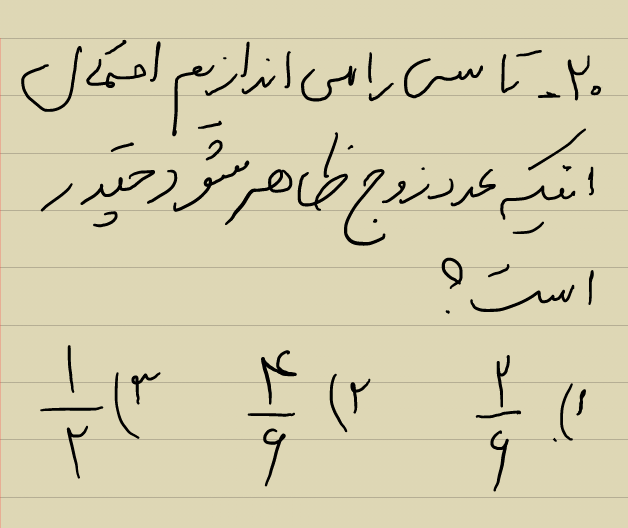 ۲۰- تاسی را می اندازیم احتمال
اینکه عدد زوج ظاهر شود چقدر
است؟
۱) ۲/۶ ۲) ۴/۶ ۳) ۱/۲